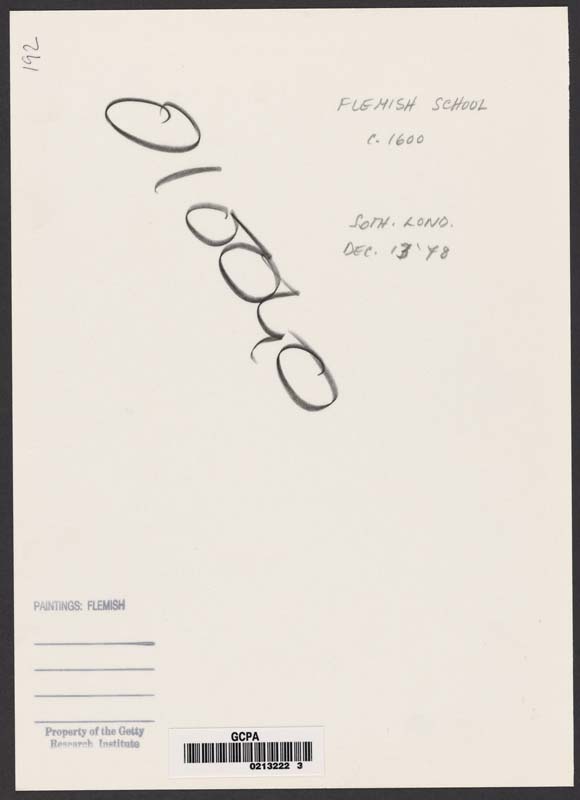 192
FLEMISH SCHOOL
C. 1600
SOTH. LOND.
DEC. 13 '78
PAINTINGS: FLEMISH
Property of the Getty
Research Institute
GCPA
0213222 3